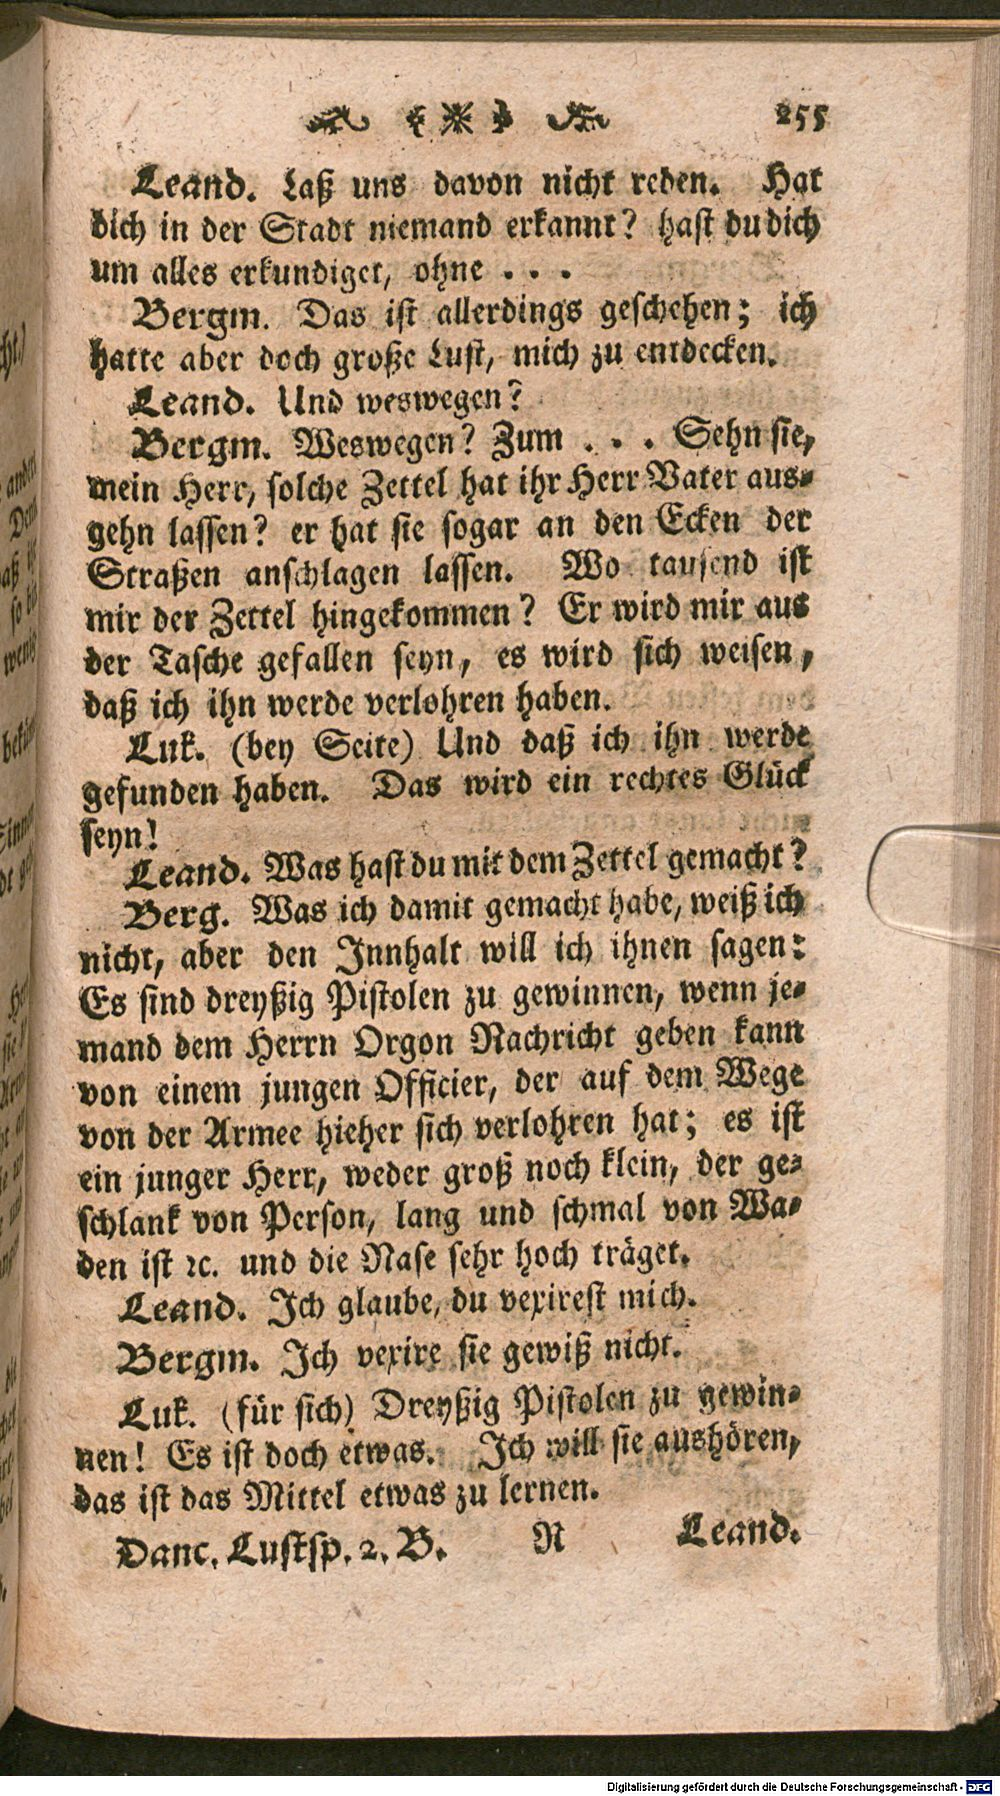 255
Leand. Laß uns davon nicht reden. Hat
dich in der Stadt niemand erkannt? hast du dich
um alles erkundiget, ohne . . .
Bergm. Das ist allerdings geschehen; ich
hatte aber doch große Lust, mich zu entdecken.
Leand. Und weswegen?
Bergm. Weswegen? Zum . . . Sehn sie,
mein Herr, solche Zettel hat ihr Herr Vater aus-
gehn lassen? er hat sie sogar an den Ecken der
Straßen anschlagen lassen. Wo tausend ist
mir der Zettel hingekommen? Er wird mir aus
der Tasche gefallen seyn, es wird sich weisen,
daß ich ihn werde verlohren haben.
Luk. (bey Seite) Und daß ich ihn werde
gefunden haben. Das wird ein rechtes Glück
seyn!
Leand. Was hast du mit dem Zettel gemacht?
Berg. Was ich damit gemacht habe, weiß ich
nicht, aber den Innhalt will ich ihnen sagen:
Es sind dreyßig Pistolen zu gewinnen, wenn je-
mand dem Herrn Orgon Nachricht geben kann
von einem jungen Officier, der auf dem Wege
von der Armee hieher sich verlohren hat; es ist
ein junger Herr, weder groß noch klein, der ge-
schlank von Person, lang und schmal von Wa-
den ist ꝛc. und die Nase sehr hoch träget.
Leand. Ich glaube, du vexirest mich.
Bergm. Ich vexire sie gewiß nicht.
Luk. (für sich) Dreyßig Pistolen zu gewin-
nen! Es ist doch etwas. Ich will sie aushören,
das ist das Mittel etwas zu lernen.
Danc. Lustsp. 2. B. R Leand.
Digitalisierung gefördert durch die Deutsche Forschungsgemeinschaft - DFG